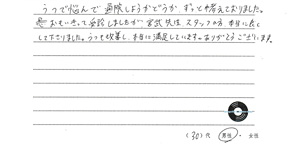 うつで悩んで通院しようかどうか、ずっと考えておりました。
思いきって受診しましたが宮武先生、スタッフの方、本当に良く
して下さりました。うつも改善し、本当に満足しています。ありがとうございます。
(30)代 男性・女性